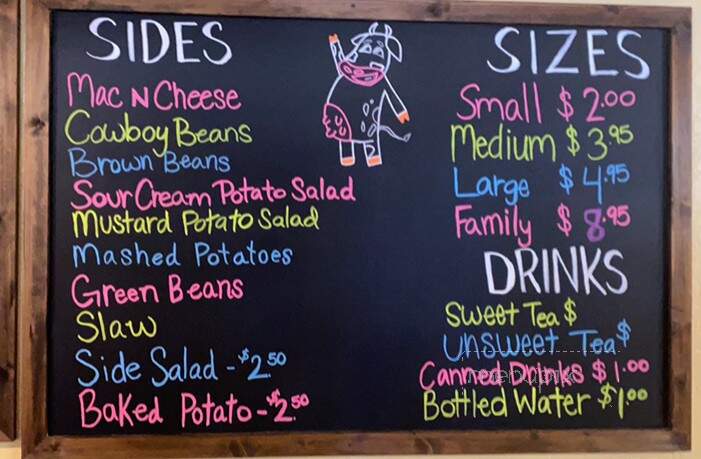 SIDES
Mac N Cheese
Cowboy Beans
Brown Beans
Sour Cream Potato Salad
Mustard Potato Salad
Mashed Potatoes
Green Beans
Slaw
Side Salad - $2.50
Baked Potato - $2.50
SIZES
Small $2.00
Medium $3.95
Large $4.95
Family $8.95
DRINKS
Sweet Tea $
Unsweet Tea $
Canned Drinks $1.00
Bottled Water $1.00